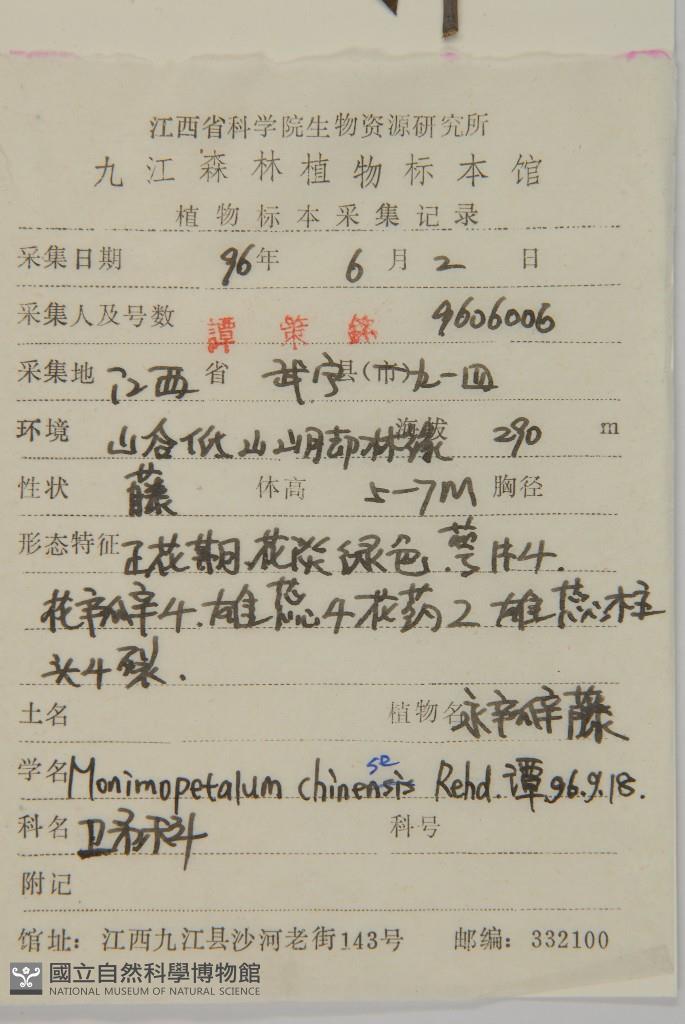 江西省科学院生物资源研究所
九江森林植物标本馆
植物标本采集记录
采集日期 96年 6月 2日
采集人及号数 譚策銘 9606006
采集地 江西省 武宁县(市)九一四
环境 山谷低山山脚林缘 海拔 290 m
性状 藤 体高 5-7M 胸径
形态特征 正花期.花淡绿色.萼片4.
花瓣4.雄蕊4花药2 雄蕊柱
头4裂.
土名 植物名 永瓣藤
se
学名 Monimopetalum chinensis Rehd. 谭.96.9.18.
科名 卫矛科 科号
附记
馆址：江西九江县沙河老街143号 邮编：332100
國立自然科學博物館
NATIONAL MUSEUM OF NATURAL SCIENCE